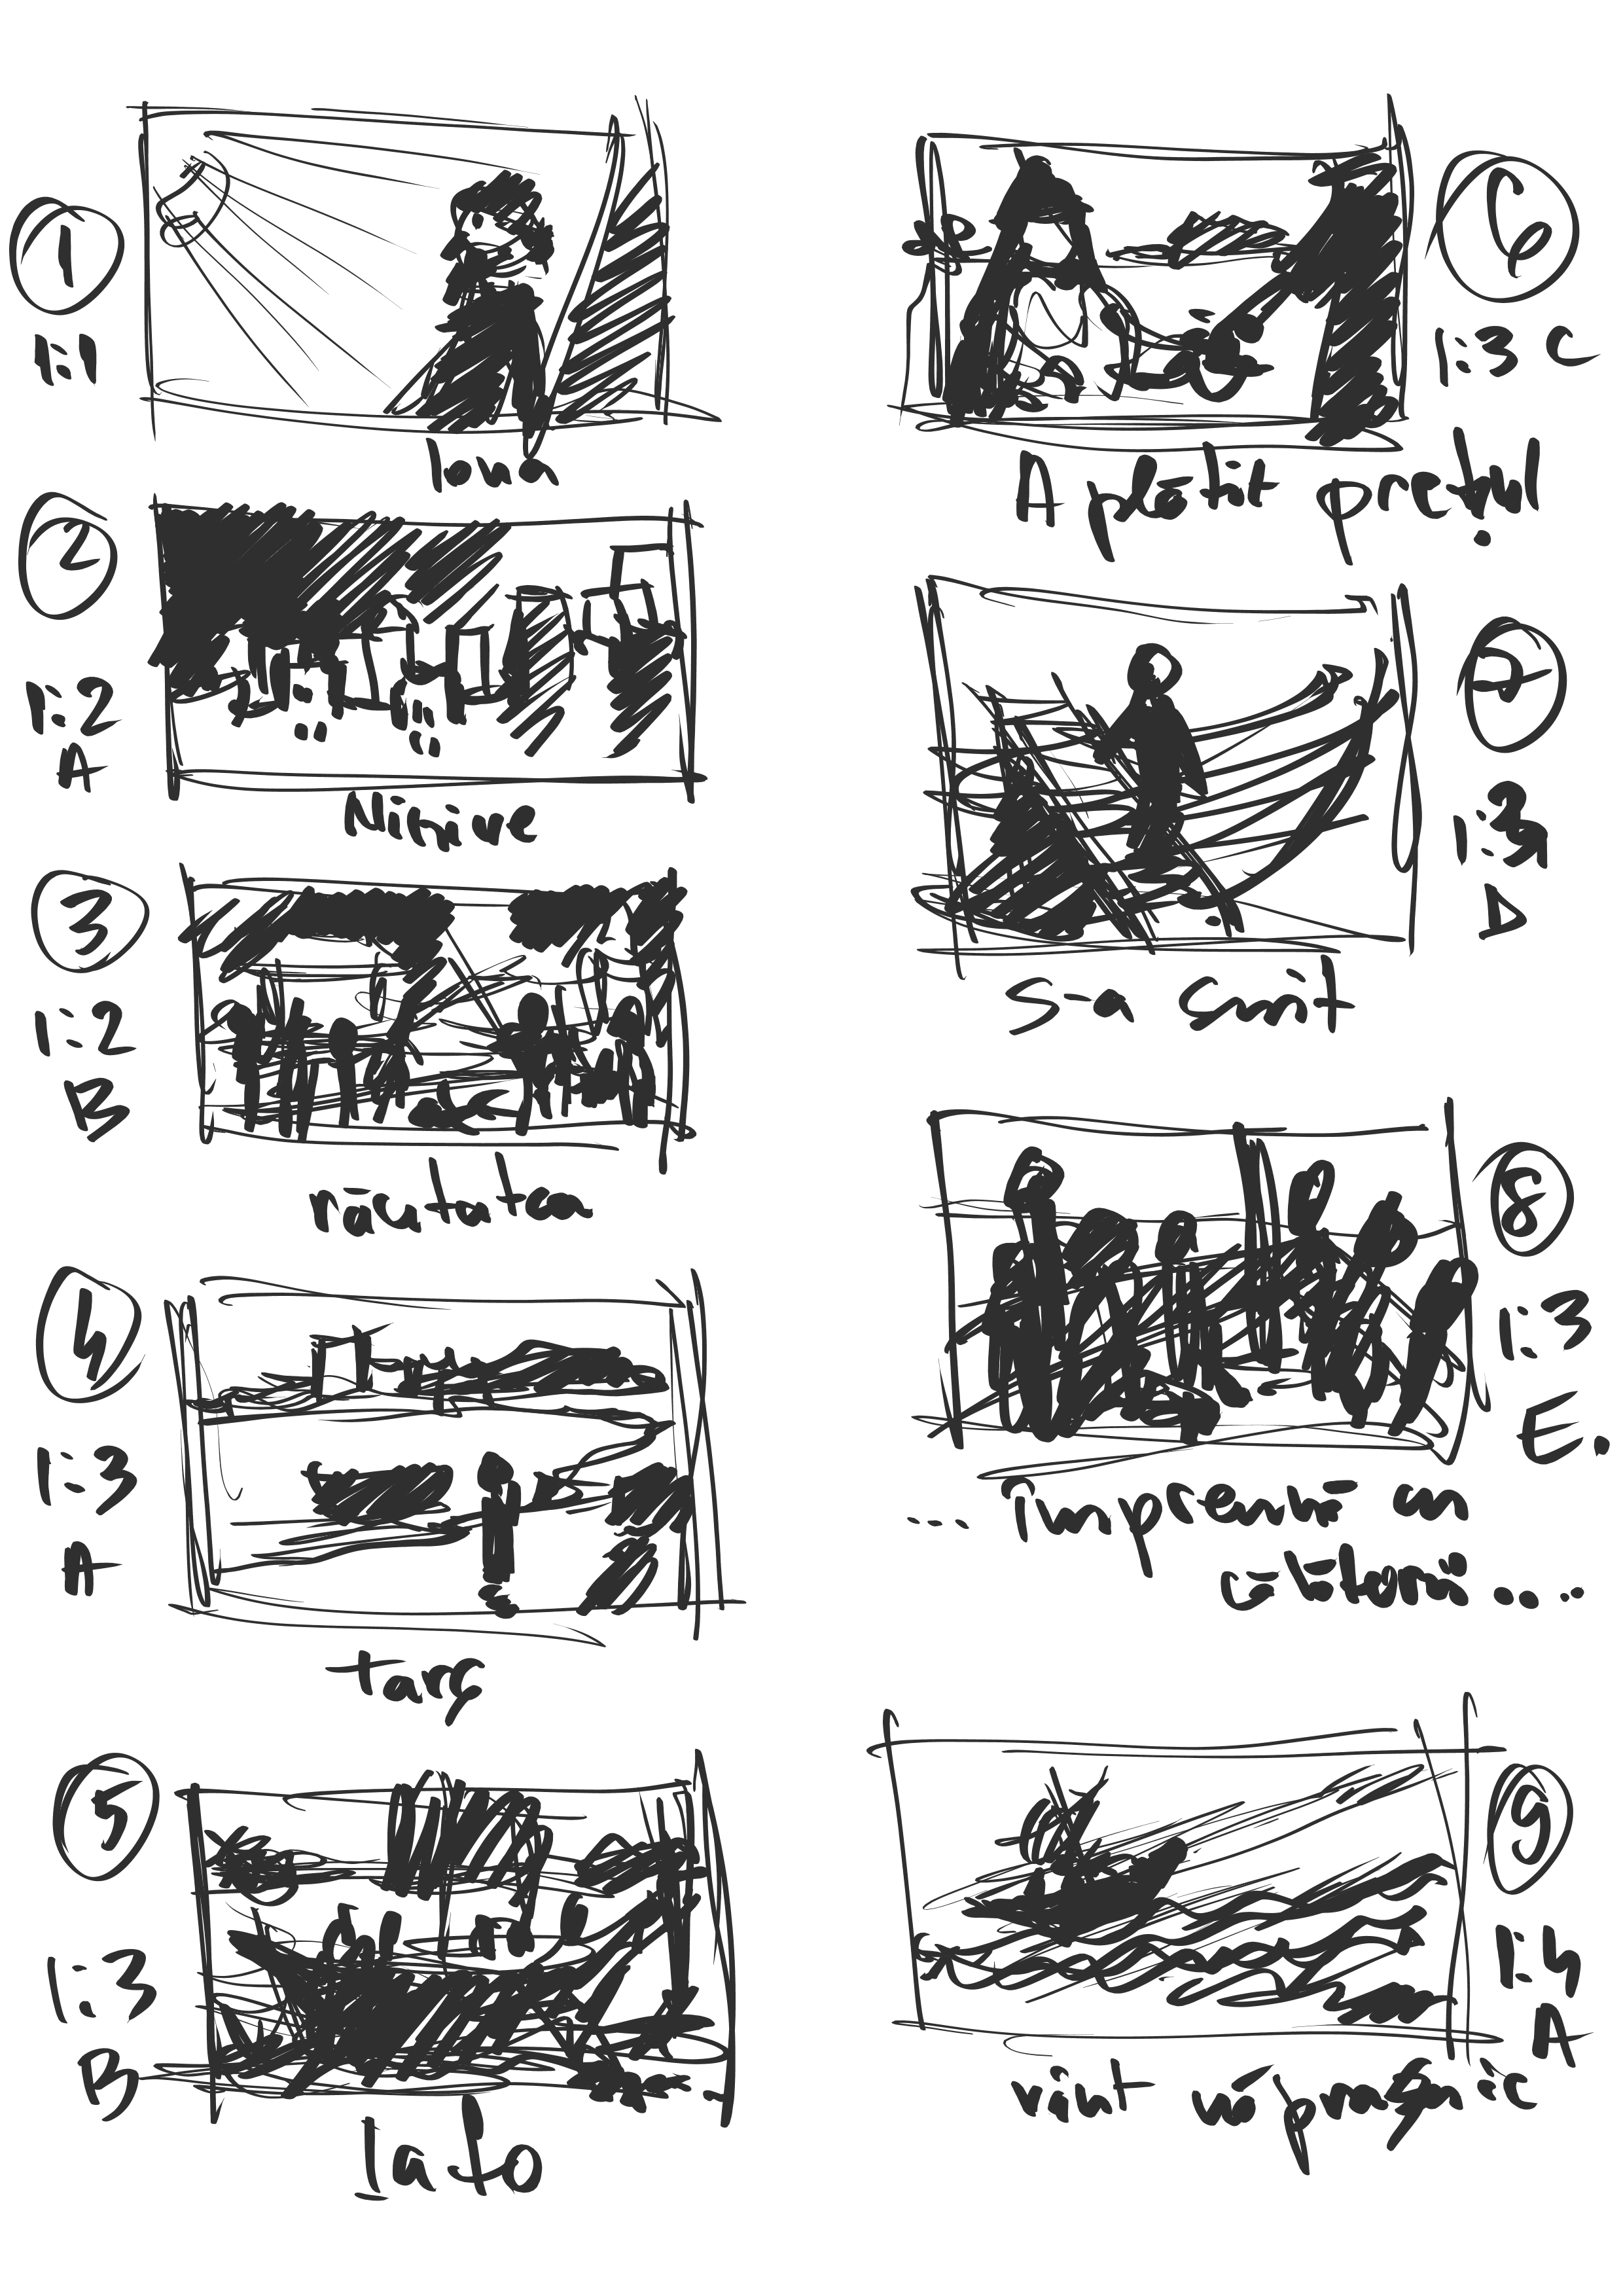 1
1:1
Iona
2
1:2
A
Ninive
3
1:2
B
răutatea
4
1:3
A
Tarș
5
1:3
B
Iafo
6
1:3 C
A plătit prețul
7
1:3
D
S-a suit
8
1:3
E.
... împreună cu
călătorii .....
9
1:4
A
vânt năprasnic